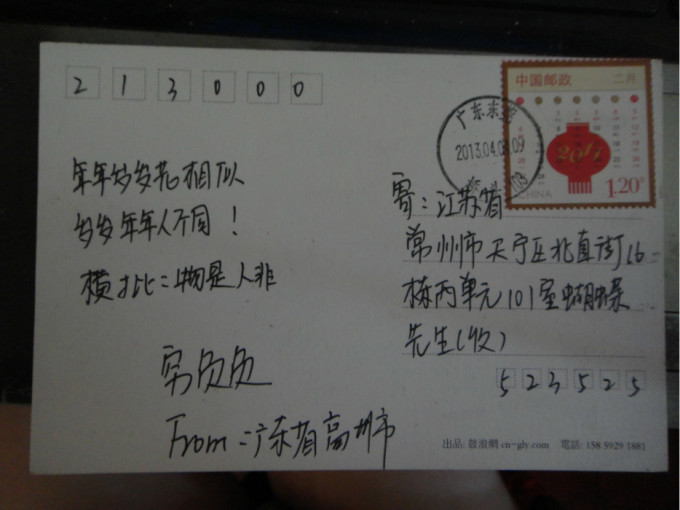 213000
中国邮政
二井
广东东莞
2013.04.08.09
2011
1.20元
CHINA
年年岁岁花相似
岁岁年年人不同！
横批：物是人非
寄：江苏省
常州市天宁区北直街16
栋丙单元101室蝴蝶
先生(收)
523525
穷负负
From：广东省高州市
出品: 發浪網 cn-gly.com 電話: 158 5929 1881